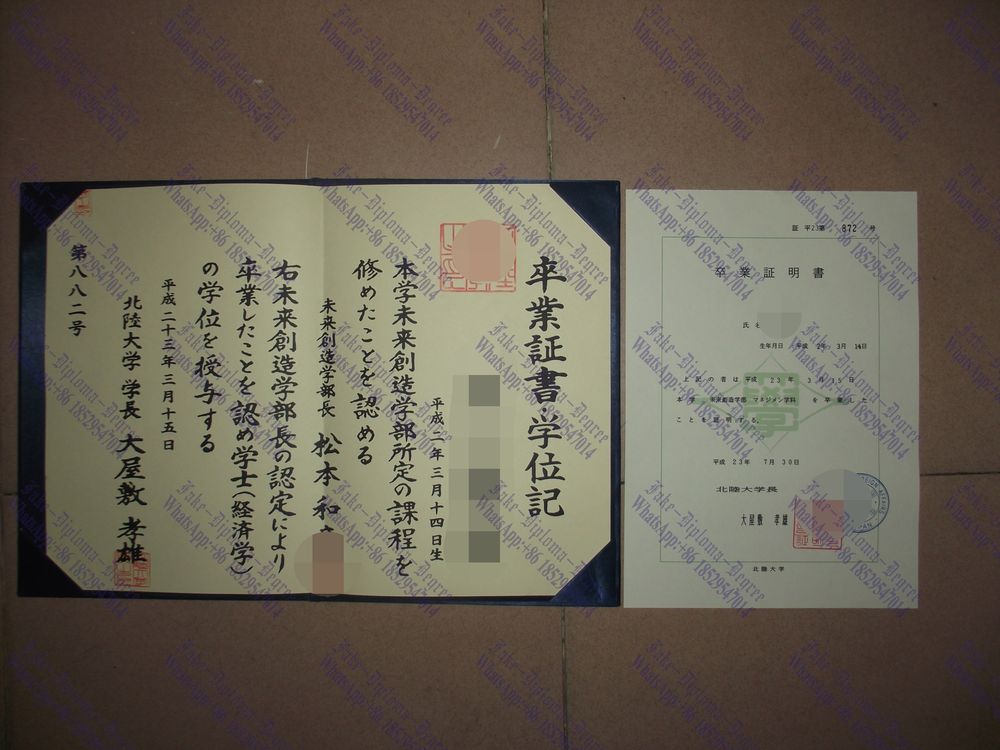 卒業証書・学位記
平成二年三月十四日生
本学未来創造学部所定の課程を
修めたことを認める
未来創造学部長 松本和
右未来創造学部長の認定により
卒業したことを認め学士(経済学)
の学位を授与する
平成二十三年三月十五日
北陸大学 学長 大屋敷 孝雄
第八八二号
証 平23第 872 号
卒業証明書
氏名
生年月日 平成 2年 3月 14日
上記の者は平成 23年 3月15日
本学 未来創造学部 マネジメン学科 を卒業した
ことを証明する。
平成 23年 7月30日
北陸大学長
大屋敷 孝雄
北陸大学
Fake-Diploma-Degree
WhatsApp:+86 18529547014